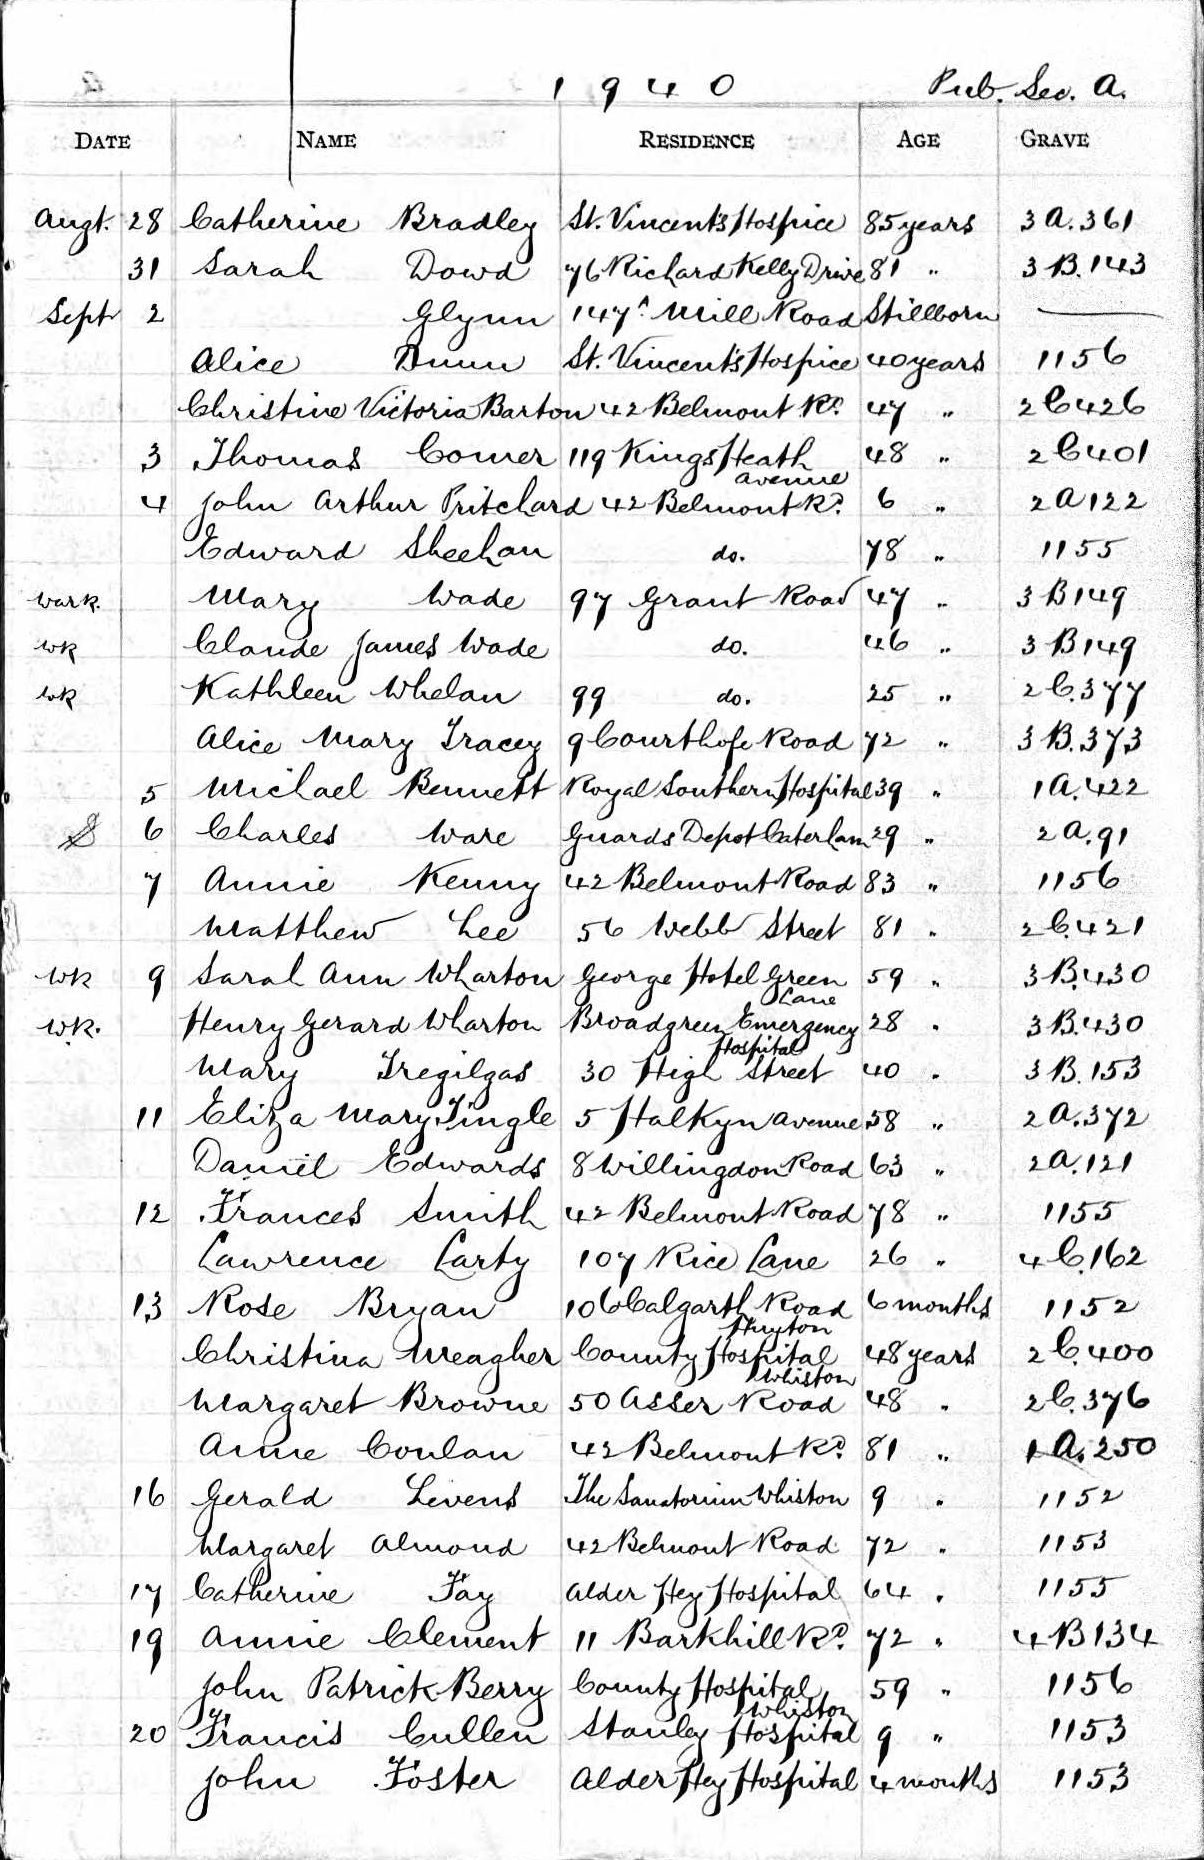 1940 Pub. Sec. A.
DATE NAME RESIDENCE AGE GRAVE
Augt. 28 Catherine Bradley St. Vincent's Hospice 85 years 3 A. 361
31 Sarah Dowd 76 Richard Kelly Drive 81 " 3 B. 143
Sept 2 Glynn 147A Mill Road Stillborn —
Alice Dunn St. Vincent's Hospice 40 years 1156
Christine Victoria Barton 42 Belmont Rd. 47 " 2 C 426
3 Thomas Comer 119 Kings Heath Avenue 48 " 2 C 401
4 John Arthur Pritchard 42 Belmont Rd. 6 " 2 A 122
Edward Sheehan do. 78 " 1155
wark. Mary Wade 97 Grant Road 47 " 3 B 149
wk Claude James Wade do. 46 " 3 B 149
wk Kathleen Whelan 99 do. 25 " 2 C. 377
Alice Mary Tracey 9 Courthope Road 72 " 3 B. 373
5 Michael Bennett Royal Southern Hospital 39 " 1 A. 422
6 Charles Ware Guards Depot Caterham 29 " 2 A. 91
7 Annie Kenny 42 Belmont Road 83 " 1156
Matthew Lee 56 Webb Street 81 " 2 C. 421
wk 9 Sarah Ann Wharton George Hotel Green Lane 59 " 3 B. 430
wk. Henry Gerard Wharton Broadgreen Emergency Hospital 28 " 3 B. 430
Mary Tregilgas 30 High Street 40 " 3 B. 153
11 Eliza Mary Tingle 5 Halkyn Avenue 58 " 2 A. 372
Daniel Edwards 8 Willingdon Road 63 " 2 A. 121
12 Frances Smith 42 Belmont Road 78 " 1155
Lawrence Carty 107 Rice Lane 26 " 4 C. 162
13 Rose Bryan 106 Calgarth Road Huyton 6 months 1152
Christina Meagher County Hospital Whiston 48 years 2 C. 400
Margaret Browne 50 Asser Road 48 " 2 C. 376
Annie Conlan 42 Belmont Rd. 81 " 1 A. 250
16 Gerald Levens The Sanatorium Whiston 9 " 1152
Margaret Almond 42 Belmont Road 72 " 1153
17 Catherine Fay Alder Hey Hospital 64 " 1155
19 Annie Clement 11 Barkhill Rd. 72 " 4 B 134
John Patrick Berry County Hospital Whiston 59 " 1156
20 Francis Cullen Stanley Hospital 9 " 1153
John Foster Alder Hey Hospital 4 months 1153